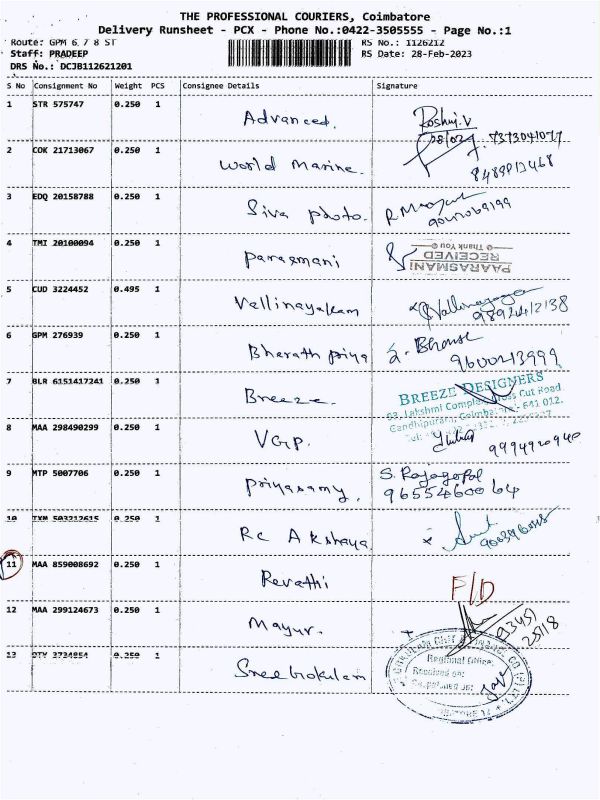 THE PROFESSIONAL COURIERS, Coimbatore
Delivery Runsheet - PCX - Phone No.:0422-3505555 - Page No.:1
Route: GPM 6 7 8 ST
RS No.: 1126212
Staff: PRADEEP
RS Date: 28-Feb-2023
DRS No.: DCJB112621201
S No Consignment No Weight PCS Consignee Details Signature
1 STR 575747 0.250 1 Advanced. Roshni.V 28/02 7373041077
2 COK 21713067 0.250 1 World Marine.
3 EDQ 20158788 0.250 1 Siva photo.
4 TMI 20100094 0.250 1 Parasmani PAARASMANI RECEIVED Thank You
5 CUD 3224452 0.495 1 Vallinayakam
6 GPM 276939 0.250 1 Bharath priya 9600213999
7 BLR 6151417241 0.250 1 Breeze. BREEZE DESIGNERS
63, Lakshmi Complex, Cross Cut Road
Gandhipuram, Coimbatore - 641 012.
8 MAA 298490299 0.250 1 VGP. 9994920940
9 MTP 5007706 0.250 1 Priyasamy. S. Rajagopal
9655460064
10 TXM 503212615 0.250 1 Rc Akshaya
11 MAA 859008692 0.250 1 Revathi F/D
12 MAA 299124673 0.250 1 Mayur. 93451
25118
13 0.250 1 Sree Gokulam
Regional Office
Received on: